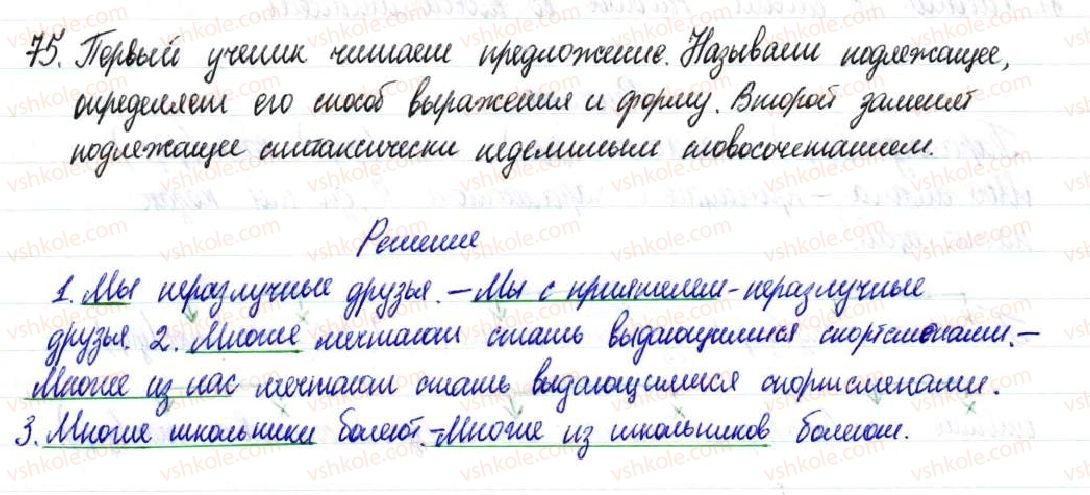 75. Первый ученик читает предложение. Называет подлежащее,
определяет его способ выражения и форму. Второй заменяет
подлежащее синтаксически неделимым словосочетанием.
Решение
1. Мы неразлучные друзья. – Мы с приятелем - неразлучные
друзья. 2. Многие мечтают стать выдающимися спортсменами. –
Многие из нас мечтают стать выдающимися спортсменами.
3. Многие школьники болеют. – Многие из школьников болеют.